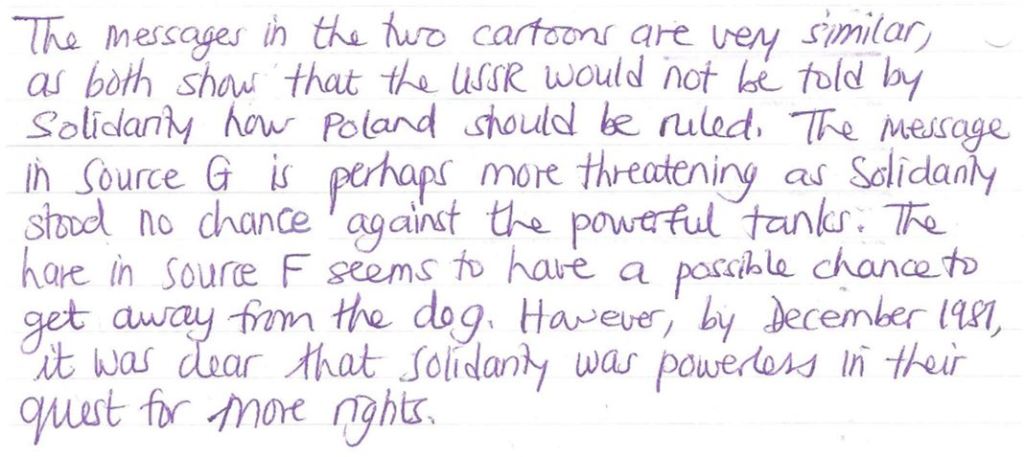 The messages in the two cartoons are very similar,
as both show that the USSR would not be told by
Solidarity how Poland should be ruled. The message
in Source G is perhaps more threatening as Solidarity
stood no chance against the powerful tanks. The
hare in Source F seems to have a possible chance to
get away from the dog. However, by December 1981,
it was clear that Solidarity was powerless in their
quest for more rights.